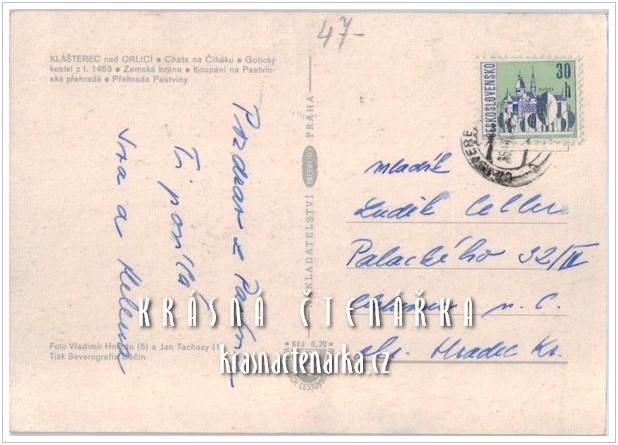 47-
KLÁŠTEREC nad ORLICÍ ● Chata na Čiháku ● Gotický
kostel z l. 1453 ● Zemská brána ● Koupání na Pastvin-
ské přehradě ● Přehrada Pastviny
Pozdrav z Pastvin
Ti posílá
Iva a Helena
NAKLADATELSTVÍ PRESSFOTO PRAHA
Kčs 0,20
ČESKOSLOVENSKO
30
h
mladík
Luděk Celler
Palackého 32/II
n. C.
okr. Hradec Kr.
KRÁSNÁ ČTENÁŘKA
krasnactenarka.cz
Foto Vladimír (5) a Jan Tachezy (1)
Tisk Severografia Děčín